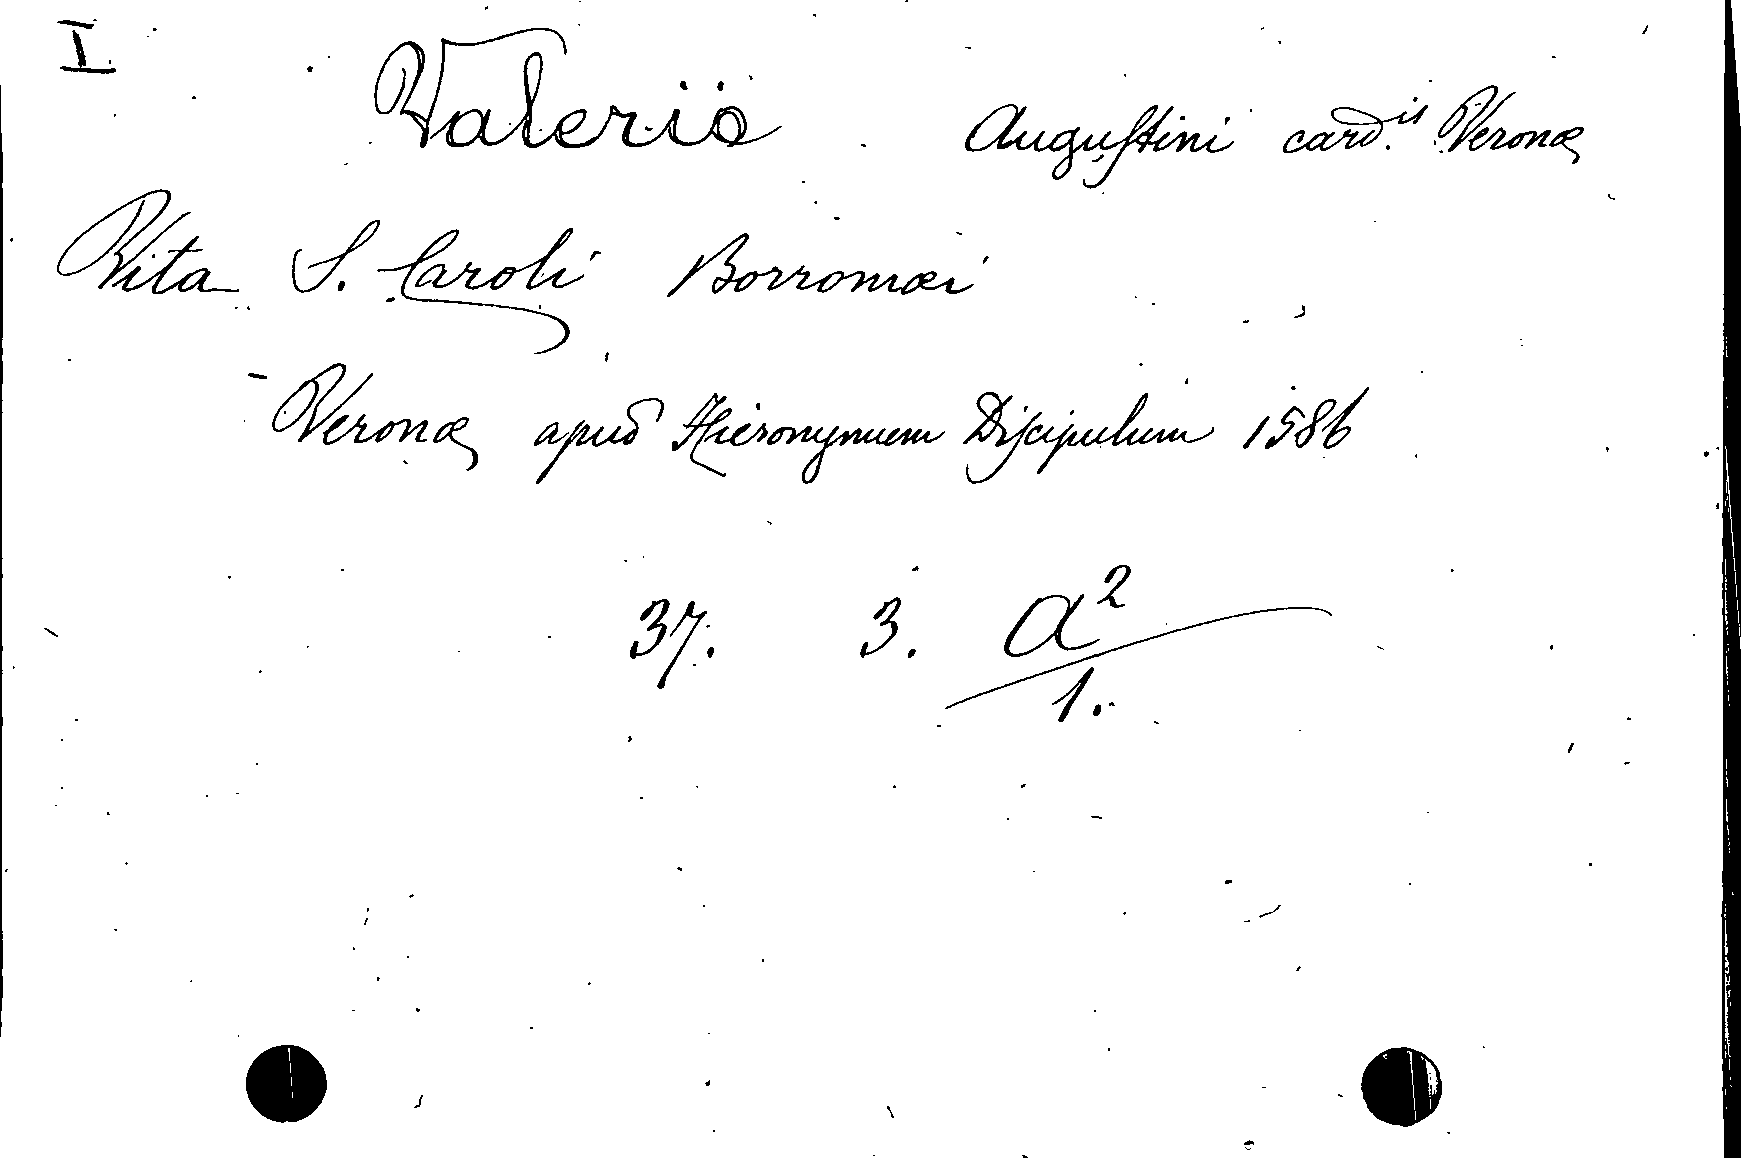 I
Valerio Augustini card.is Veronæ
Vita S. Caroli Borromæi
Veronæ apud Hieronymum Discipulum 1586
37. 3. a2
1.